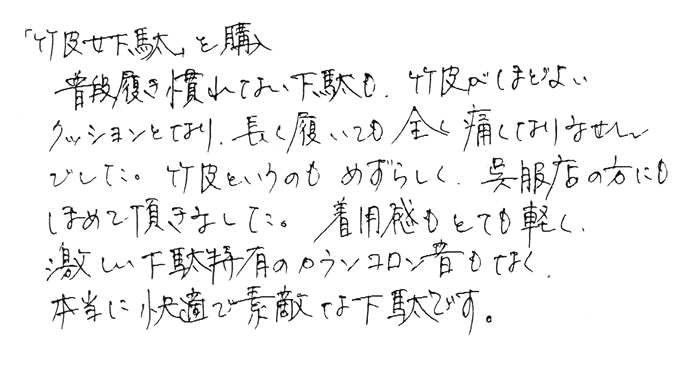 「竹皮女下駄」を購入
普段履き慣れてない下駄も、竹皮がほどよい
クッションとなり、長く履いても全く痛くなりません
でした。竹皮というのもめずらしく、呉服店の方にも
ほめて頂きました。着用感もとても軽く、
激しい下駄特有のカランコロン音もなく、
本当に快適で素敵な下駄です。